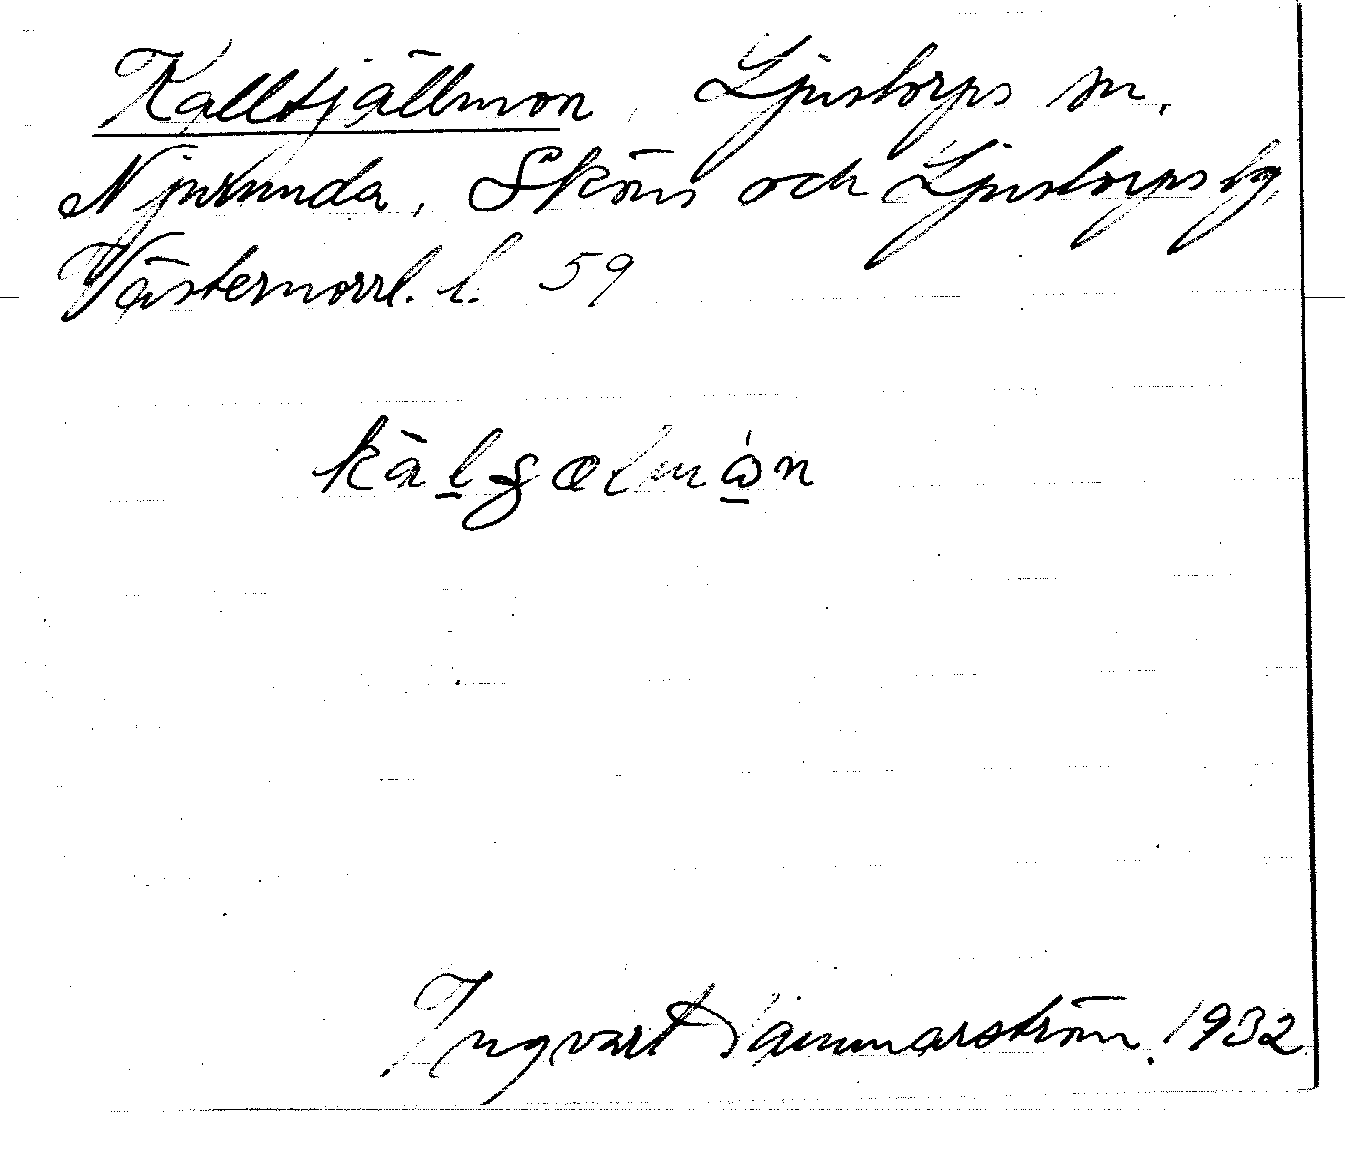 Kalltjällmon, Ljustorps sn.
Njurunda, Sköns och Ljustorps tg
Västernorrl. l. 59
Ingvart Hammarström. 1932